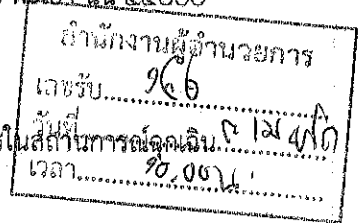 สำนักงานผู้อำนวยการ
เลขรับ ๑๔๖
วันที่
ในสถานการณ์ฉุกเฉิน
เวลา ๑๐.๐๐ น.